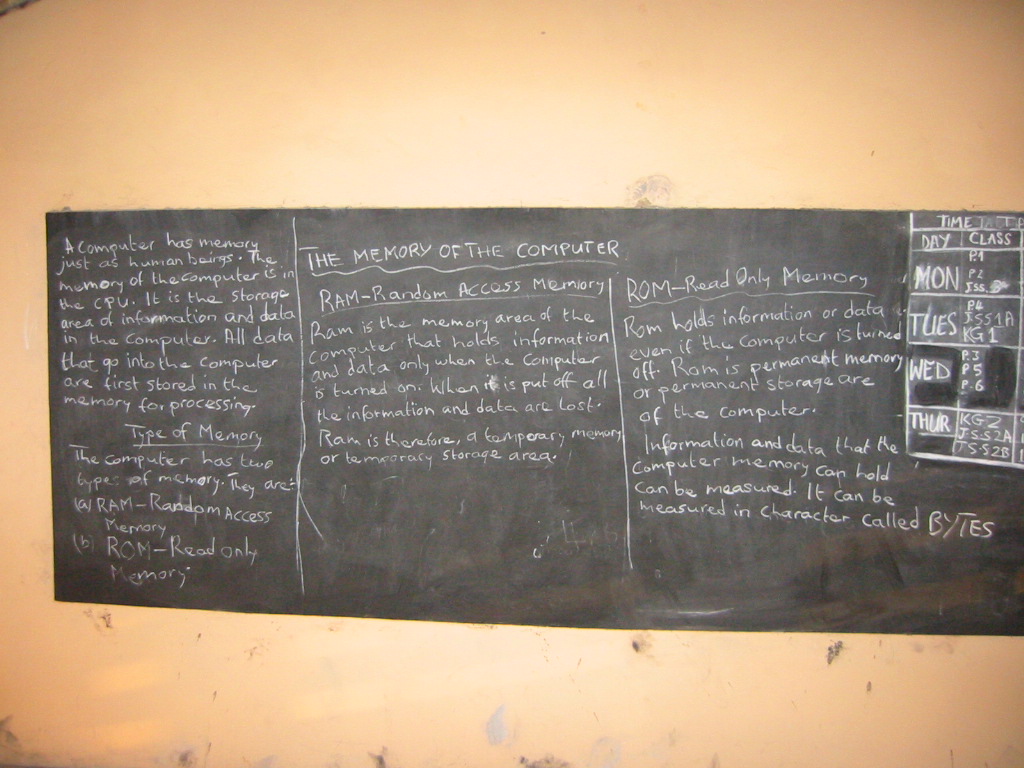 A Computer has memory
just as human beings. The
memory of the computer is in
the CPU. It is the storage
area of information and data
in the Computer. All data
that go into the Computer
are first stored in the
memory for processing.
Type of Memory
The Computer has two
types of memory. They are:
(a) RAM-Random Access
Memory
(b) ROM-Read only
Memory.
THE MEMORY OF THE COMPUTER
RAM-Random Access Memory
Ram is the memory area of the
Computer that holds information
and data only when the Computer
is turned on. When it is put off all
the information and data are lost.
Ram is therefore, a temporary memory
or temporary storage area.
ROM-Read Only Memory
Rom holds information or data
even if the computer is turned
off. Ram is permanent memory
or permanent storage are
of the computer.
Information and data that the
Computer memory can hold
can be measured. It can be
measured in character called BYTES
TIME
DAY CLASS
MON P.1
P.2
JSS.
TUES P.4
JSS1A
KG1
WED P.3
P.5
P.6
THUR KG-2
JSS2A
JSS2B